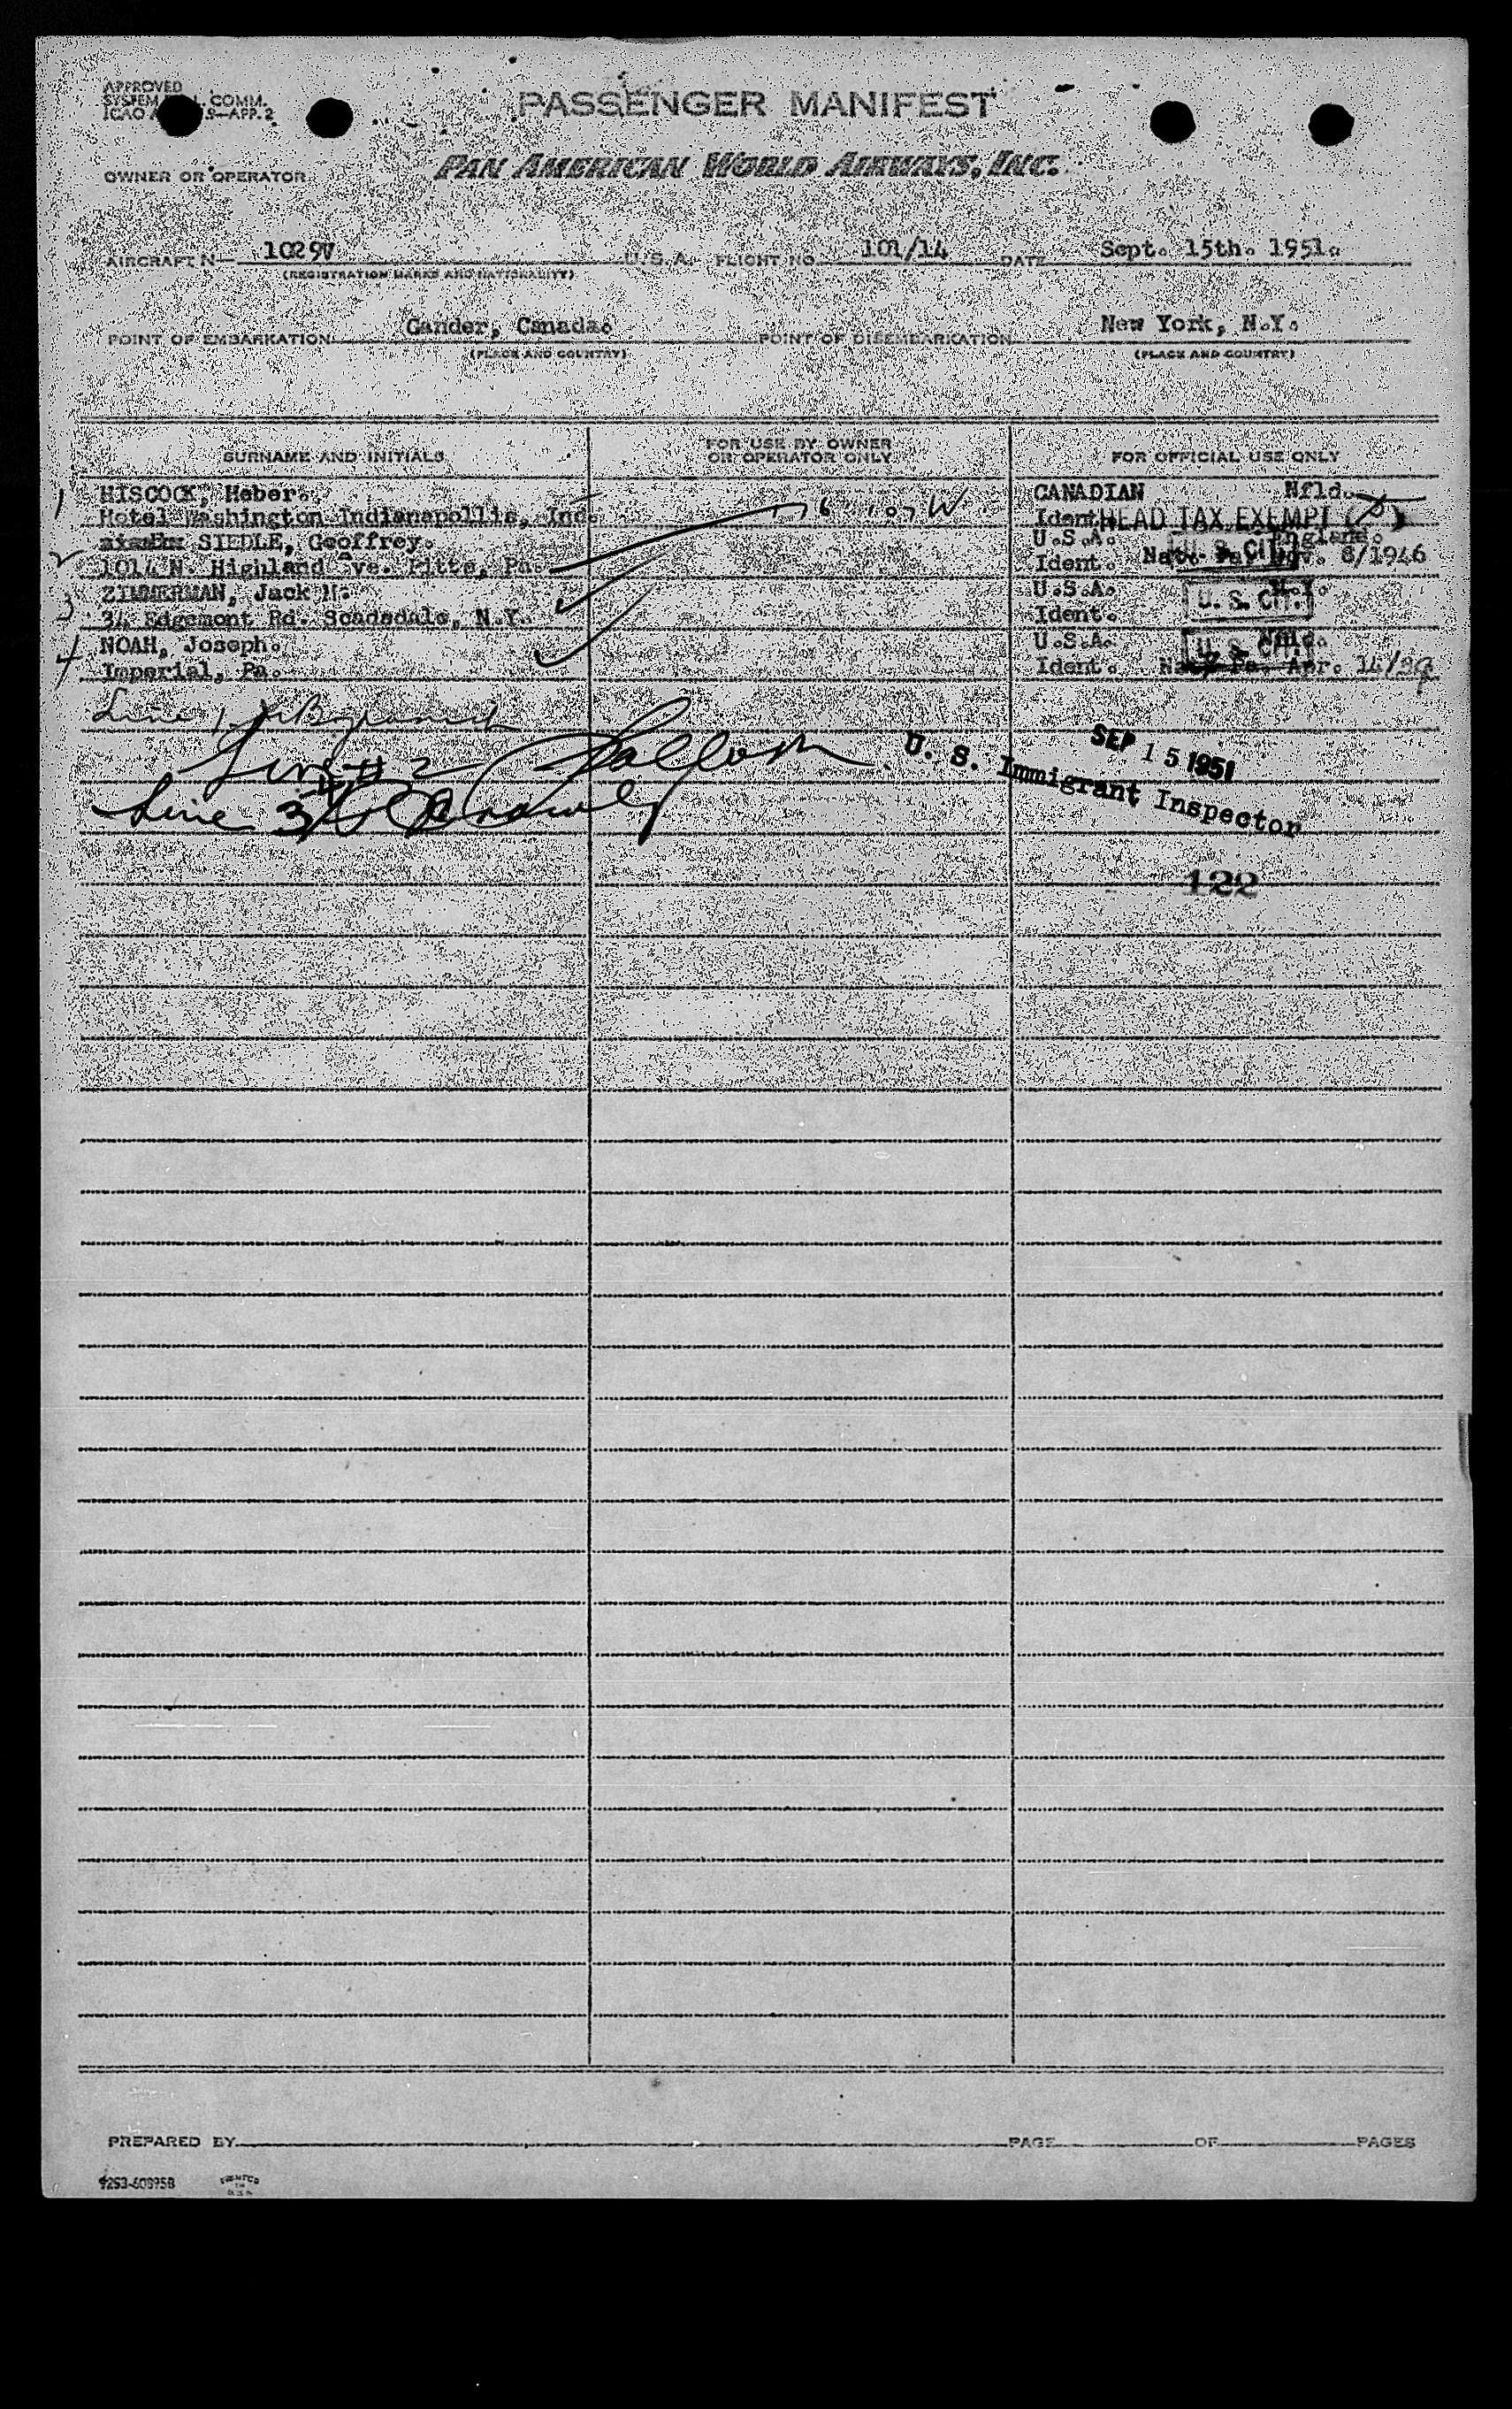 APPROVED
SYSTEM COMM.
ICAO 9—APP. 2
PASSENGER MANIFEST
OWNER OR OPERATOR
PAN AMERICAN WORLD AIRWAYS, INC.
AIRCRAFT N— 1029V U.S.A. FLIGHT NO. 101/14 DATE Sept. 15th. 1951.
(REGISTRATION MARKS AND NATIONALITY)
POINT OF EMBARKATION Gander, Canada. POINT OF DISEMBARKATION New York, N.Y.
(PLACE AND COUNTRY) (PLACE AND COUNTRY)
SURNAME AND INITIALS FOR USE BY OWNER OR OPERATOR ONLY FOR OFFICIAL USE ONLY
1 HISCOCK, Heber. CANADIAN Nfld.
Hotel Washington Indianapollis, Ind. Ident. HEAD TAX EXEMPT
2 SIEDLE, Geoffrey. U.S.A. England.
1014 N. Highland Ave. Pitts, Pa. Ident. U. S. CIT. Nov. 8/1946
3 ZIMMERMAN, Jack M. U.S.A. N.Y.
34 Edgemont Rd. Scadsdale, N.Y. Ident. U. S. CIT.
4 NOAH, Joseph. U.S.A. Nfld.
Imperial, Pa. Ident. U. S. CIT. Apr. 14/39
Line 1
Line # 2
SEP 15 1951
U. S. Immigrant Inspector
Line 3
122
PREPARED BY PAGE OF PAGES
9253-608958 PRINTED IN U.S.A.